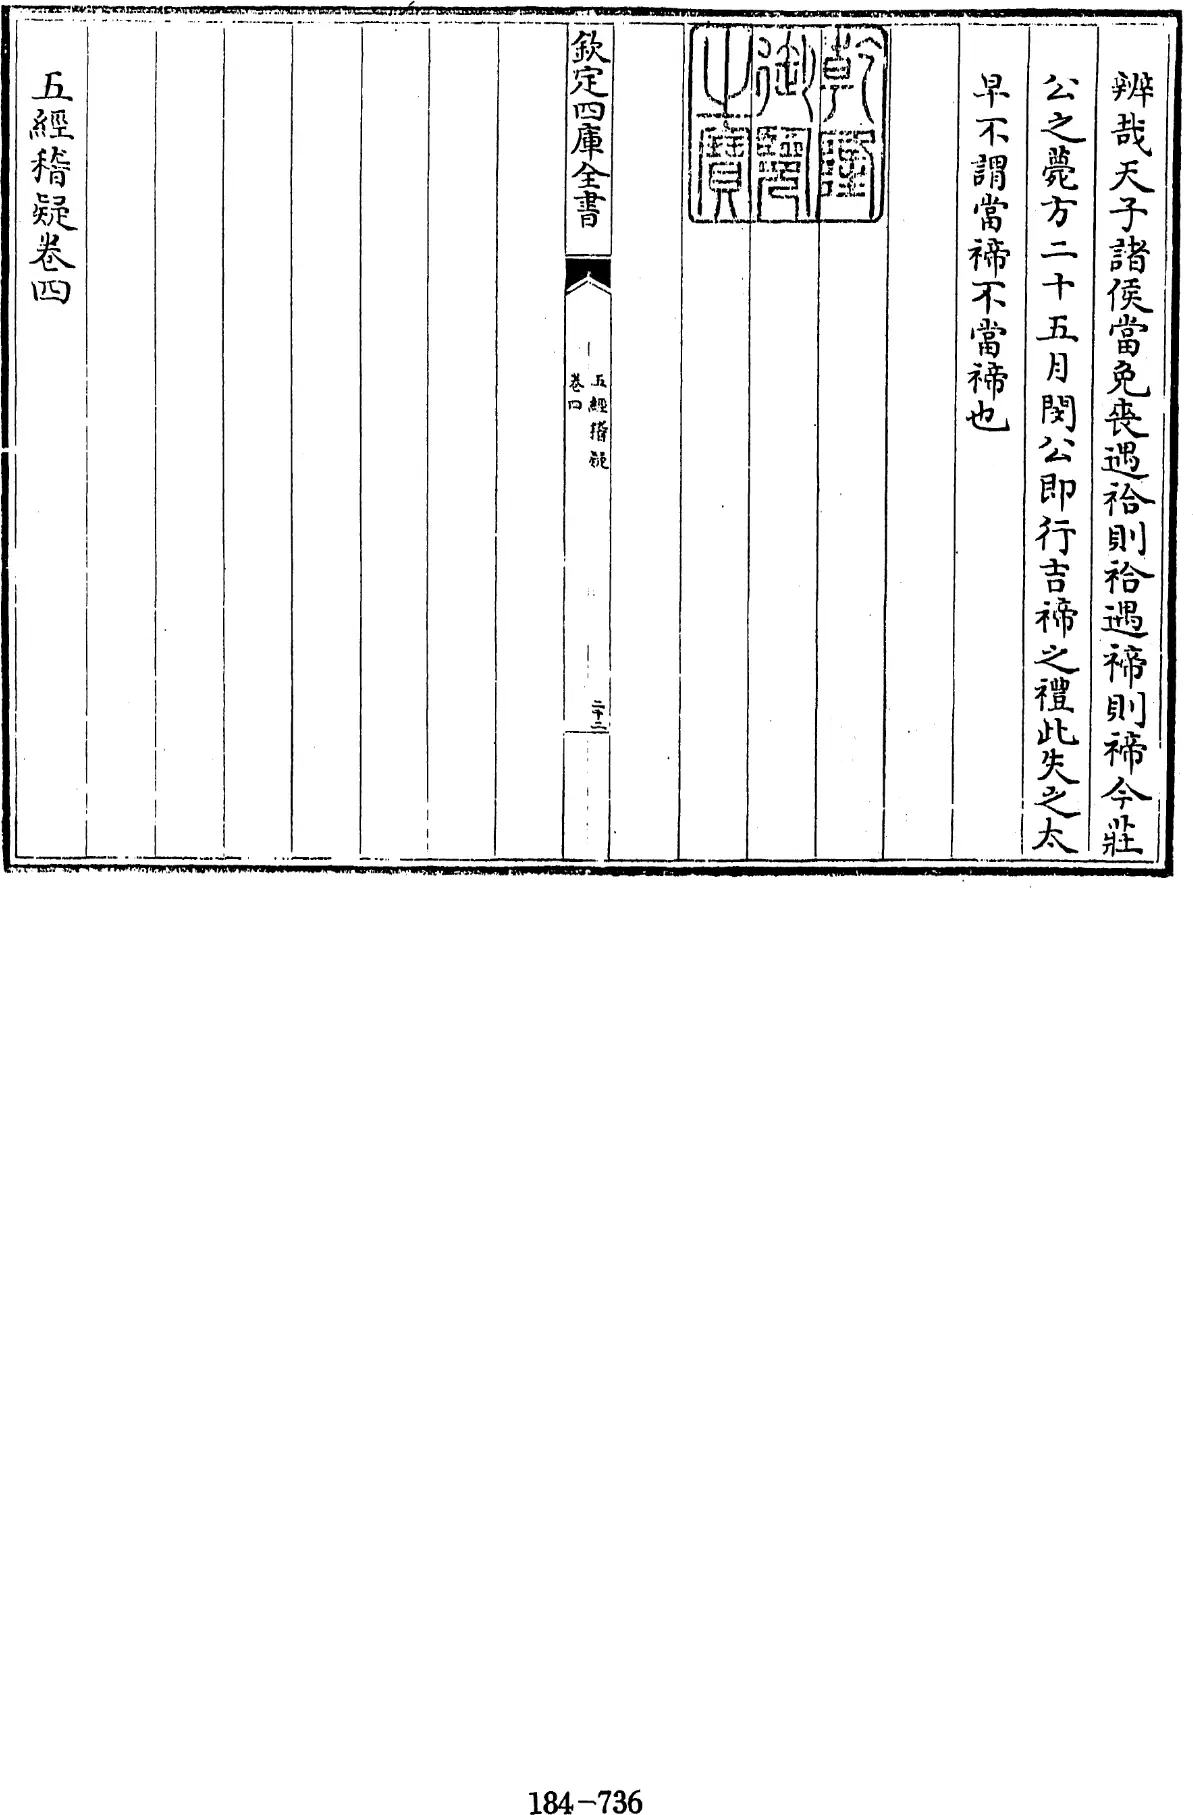 辨哉天子諸侯當免喪遇祫則祫遇禘則禘今莊
公之薨方二十五月閔公即行吉禘之禮此失之太
早不謂當禘不當禘也
乾隆
御覽
之寶
欽定四庫全書
五經稽疑
卷四
二十二
五經稽疑卷四
184-736